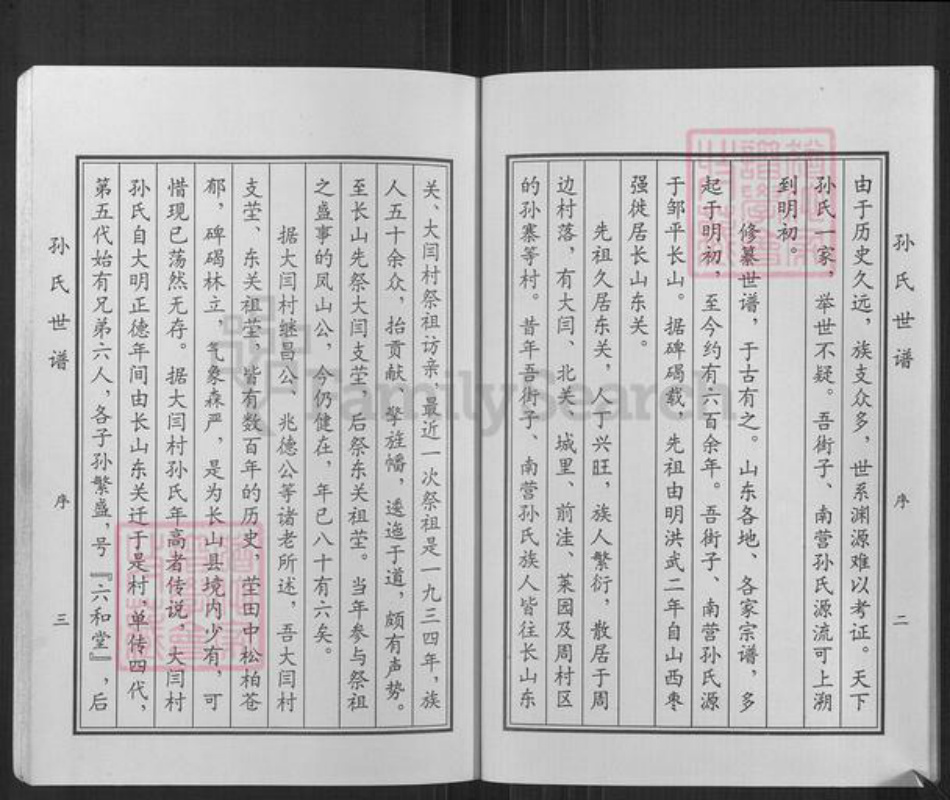 孙氏世谱
序
二
由于历史久远，族支众多，世系渊源难以考证。天下
孙氏一家，举世不疑。吾街子、南营孙氏源流可上溯
到明初。
修纂世谱，于古有之。山东各地、各家宗谱，多
起于明初，至今约有六百余年。吾街子、南营孙氏源
于邹平长山。据碑碣载，先祖由明洪武二年自山西枣
强徙居长山东关。
先祖久居东关，人丁兴旺，族人繁衍，散居于周
边村落，有大闫、北关、城里、前洼、菜园及周村区
的孙寨等村。昔年吾街子、南营孙氏族人皆往长山东
关、大闫村祭祖访亲，最近一次祭祖是一九三四年，族
人五十余众，抬贡献、擎旌幡，逶迤于道，颇有声势。
至长山先祭大闫支茔，后祭东关祖茔。当年参与祭祖
之盛事的凤山公，今仍健在，年已八十有六矣。
据大闫村继昌公、兆德公等诸老所述，吾大闫村
支茔、东关祖茔，皆有数百年的历史，茔田中松柏苍
郁，碑碣林立，气象森严，是为长山县境内少有，可
惜现已荡然无存。据大闫村孙氏年高者传说，大闫村
孙氏自大明正德年间由长山东关迁于是村，单传四代，
第五代始有兄弟六人，各子孙繁盛，号『六和堂』，后
孙氏世谱
序
三
FamilySearch